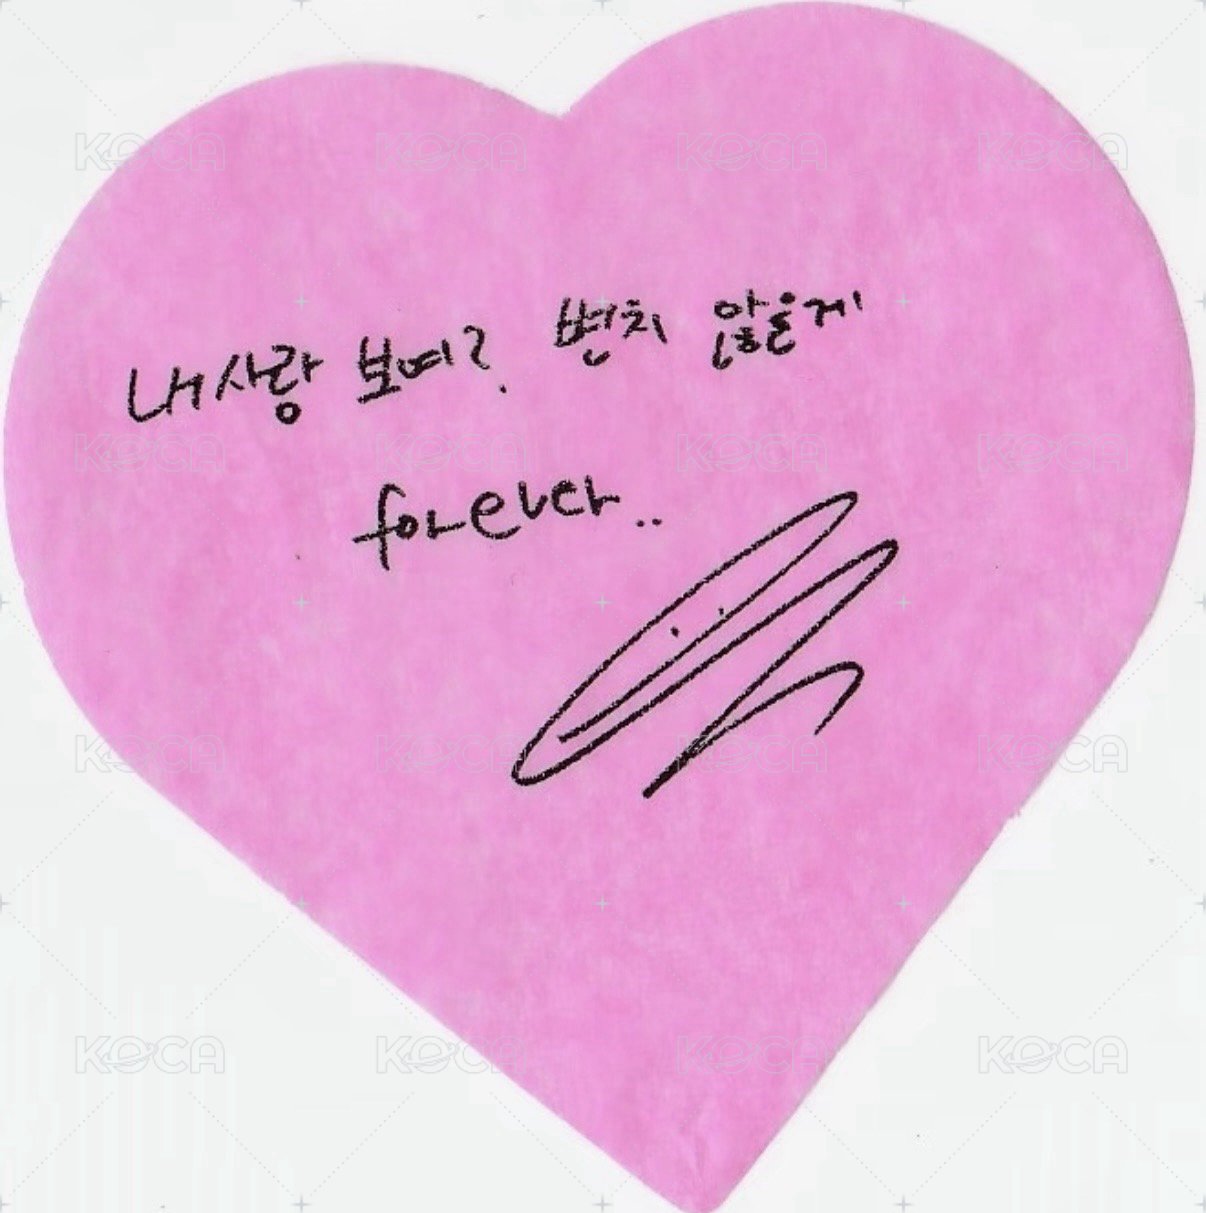 내사랑 보여? 변치 않을게
forever..
KOCA KOCA KOCA KOCA
KOCA KOCA KOCA KOCA
KOCA KOCA KOCA KOCA
KOCA KOCA KOCA KOCA